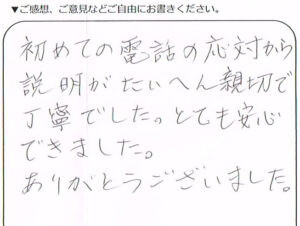 ▼ご感想、ご意見などご自由にお書きください。
初めての電話の応対から
説明がたいへん親切で
丁寧でした。とても安心
できました。
ありがとうございました。